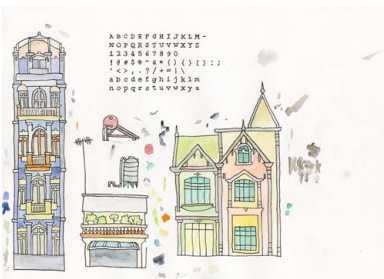 ABCDEFGHIJKLM-
NOPQRSTUVWXYZ
1234567890
!@#$%^&*(){}[]:;
'<>,.?/+=|\
abcdefghijklm
nopqrstuvwxyz